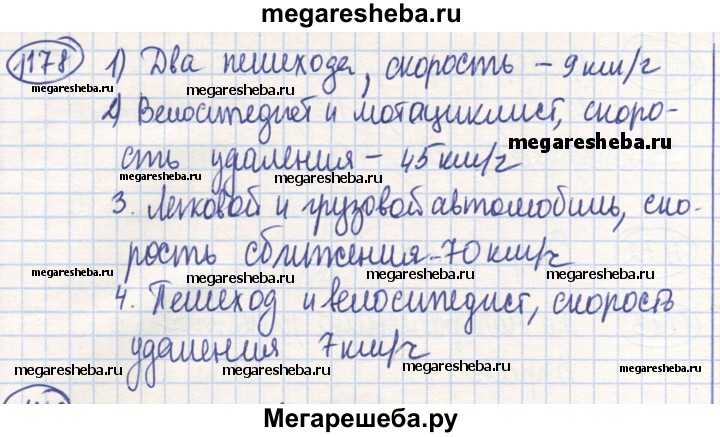 megaresheba.ru
1178 1) Два пешехода, скорость - 9 км/ч
megaresheba.ru megaresheba.ru megaresheba.ru
2) Велосипедист и мотоциклист, скоро-
megaresheba.ru
сть удаления - 45 км/ч
megaresheba.ru megaresheba.ru
3. Легковой и грузовой автомобиль, ско-
рость сближения - 70 км/ч
megaresheba.ru megaresheba.ru megaresheba.ru
4. Пешеход и велосипедист, скорость
удаления 7 км/ч
megaresheba.ru megaresheba.ru megaresheba.ru
Мегарешеба.ру